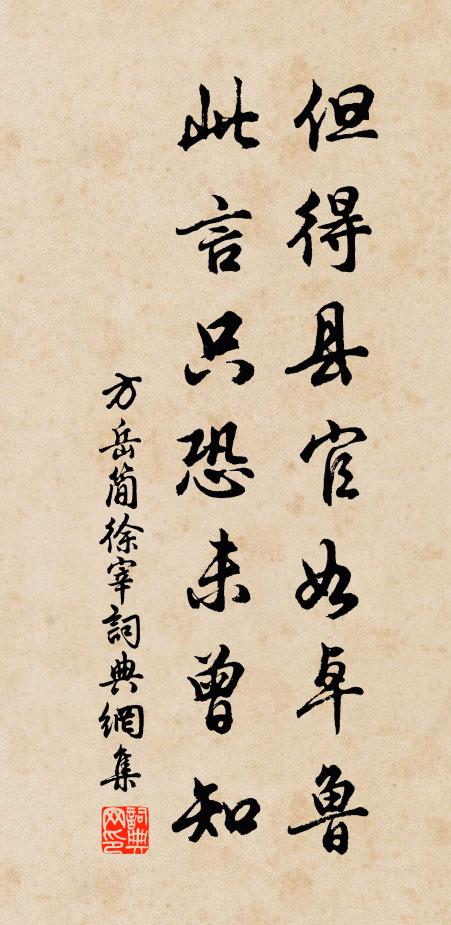 但得县官如卓鲁
此言只恐未曾知
方岳简徐宰詞典網集
詞典网印